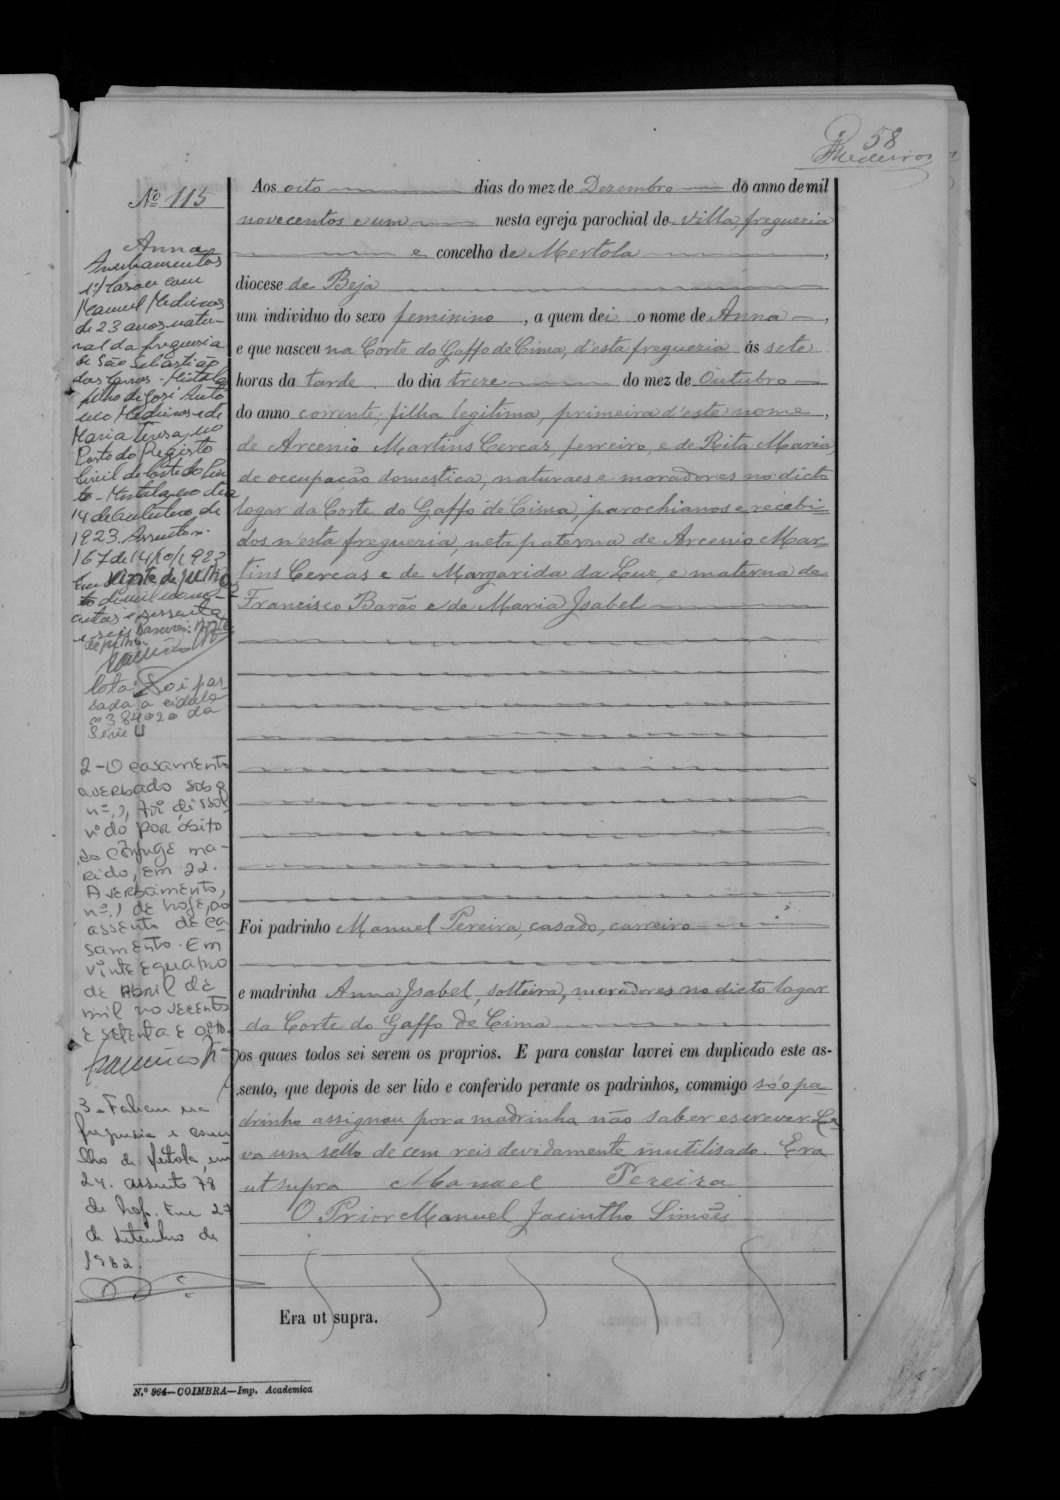 58
Medeiros
Nº 115
Anna
Averbamentos
1º Casou com
Manuel Medeiros
de 23 anos natu-
ral da freguesia
de São Sebastião
dos Carros - Mertola
filho de José Antó
nio Medeiros e de
Maria Teresa, no
Posto do Registo
Civil de
to - Mertola, no dia
14 de Outubro de
1923. Assento n.
167 de 14/10/1923
vinte de julho
de mil nove-
centos e sessenta
e seis
Nota: Foi pas-
sada a cédula
nº 384020 da
Série U
2 - O casamento
averbado sob o
nº 1, foi dissol-
vido por óbito
do cônjuge ma-
rido, em 22.
Averbamento,
nº 1 de hoje, ao
assento de ca-
samento. Em
vinte e quatro
de Abril de
mil novecentos
e setenta e oito.
3 - Faleceu na
freguesia e conce
lho de Mértola, em
24. assento 78
de hoje. Em 27
de Setembro de
1982.
Aos oito dias do mez de Dezembro do anno de mil
novecentos e um nesta egreja parochial de villa, freguezia
e concelho de Mertola,
diocese de Beja
um individuo do sexo feminino, a quem dei o nome de Anna,
e que nasceu na Corte do Gaffo de Cima, d'esta freguezia ás sete
horas da tarde do dia treze do mez de Outubro
do anno corrente, filha legitima, primeira d'este nome,
de Arcenio Martins Cercas, ferreiro, e de Rita Maria,
de occupação domestica, naturaes e moradores no dicto
logar da Corte do Gaffo de Cima, parochianos e recebi-
dos n'esta freguezia, neta paterna de Arcenio Mar-
tins Cercas e de Margarida da Luz, e materna de
Francisco Barão e de Maria Isabel
Foi padrinho Manuel Pereira, casado, carreiro
e madrinha Anna Isabel, solteira, moradores no dicto logar
da Corte do Gaffo de Cima
os quaes todos sei serem os proprios. E para constar lavrei em duplicado este as-
sento, que depois de ser lido e conferido perante os padrinhos, commigo só o pa-
drinho assignou por a madrinha não saber escrever. Le-
va um sello de cem reis devidamente inutilisado. Era
ut supra Manuel Pereira
O Prior Manuel Jacintho Simões
Era ut supra.
N.º 964—COIMBRA—Imp. Academica